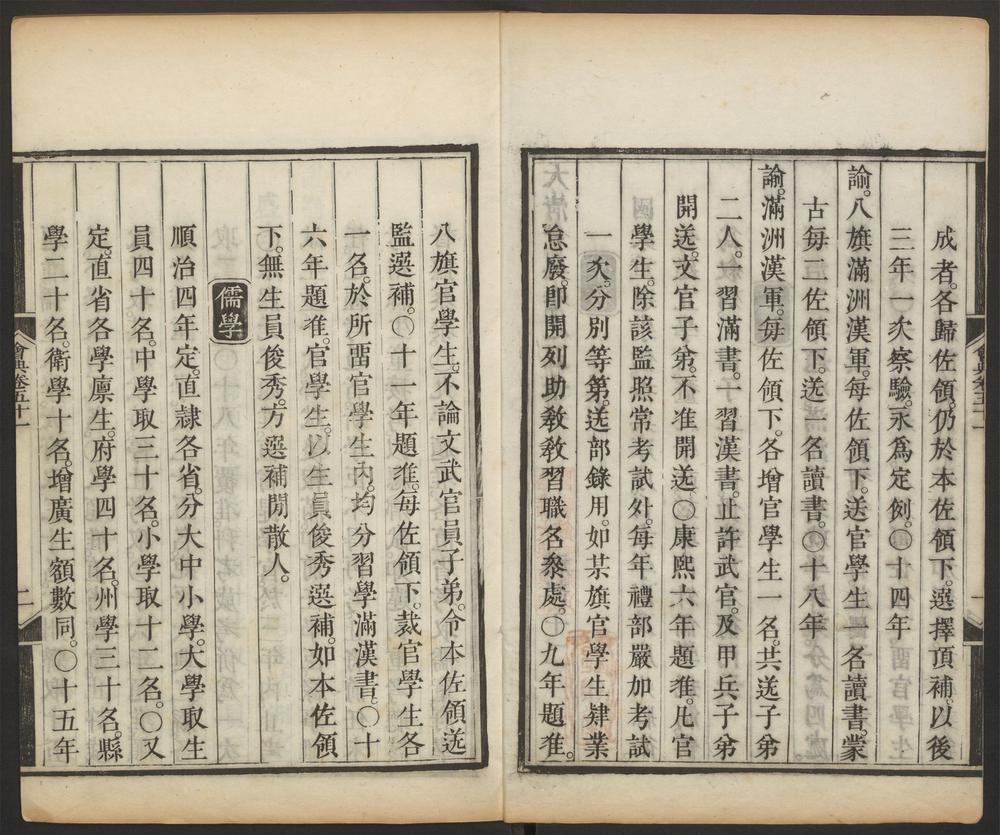 成者。各歸佐領。仍於本佐領下。選擇頂補。以後
三年一次察驗。永爲定例。〇十四年
諭。八旗滿洲漢軍。每佐領下。送官學生一名讀書。蒙
古每二佐領下。送一名讀書。〇十八年
諭。滿洲漢軍。每佐領下。各增官學生一名。共送子弟
二人。一習滿書。一習漢書。止許武官。及甲兵子弟
開送。文官子弟。不准開送〇康熙六年題准。凡官
學生。除該監照常考試外。每年禮部嚴加考試
一次。分別等第。送部錄用。如某旗官學生肄業
怠廢。卽開列助教教習職名叅處。〇九年題准。
八旗官學生。不論文武官員子弟。令本佐領送
監選補。〇十一年題准。每佐領下。裁官學生各
一名。於所畱官學生內。均分習學滿漢書。〇十
六年題准。官學生。以生員俊秀選補。如本佐領
下。無生員俊秀。方選補閒散人。
儒學
順治四年定。直隷各省。分大中小學。大學取生
員四十名。中學取三十名。小學取十二名。〇又
定。直省各學廪生。府學四十名。州學三十名。縣
學二十名。衛學十名。增廣生額數同。〇十五年
會典卷五十一
二